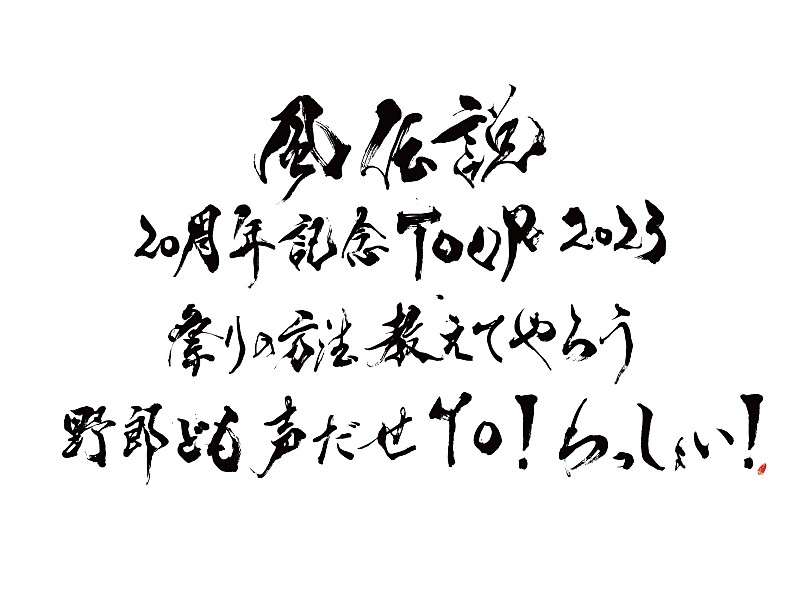 風伝説
20周年記念TOUR 2023
祭りの方法教えてやろう
野郎ども声だせYO!らっしょい!